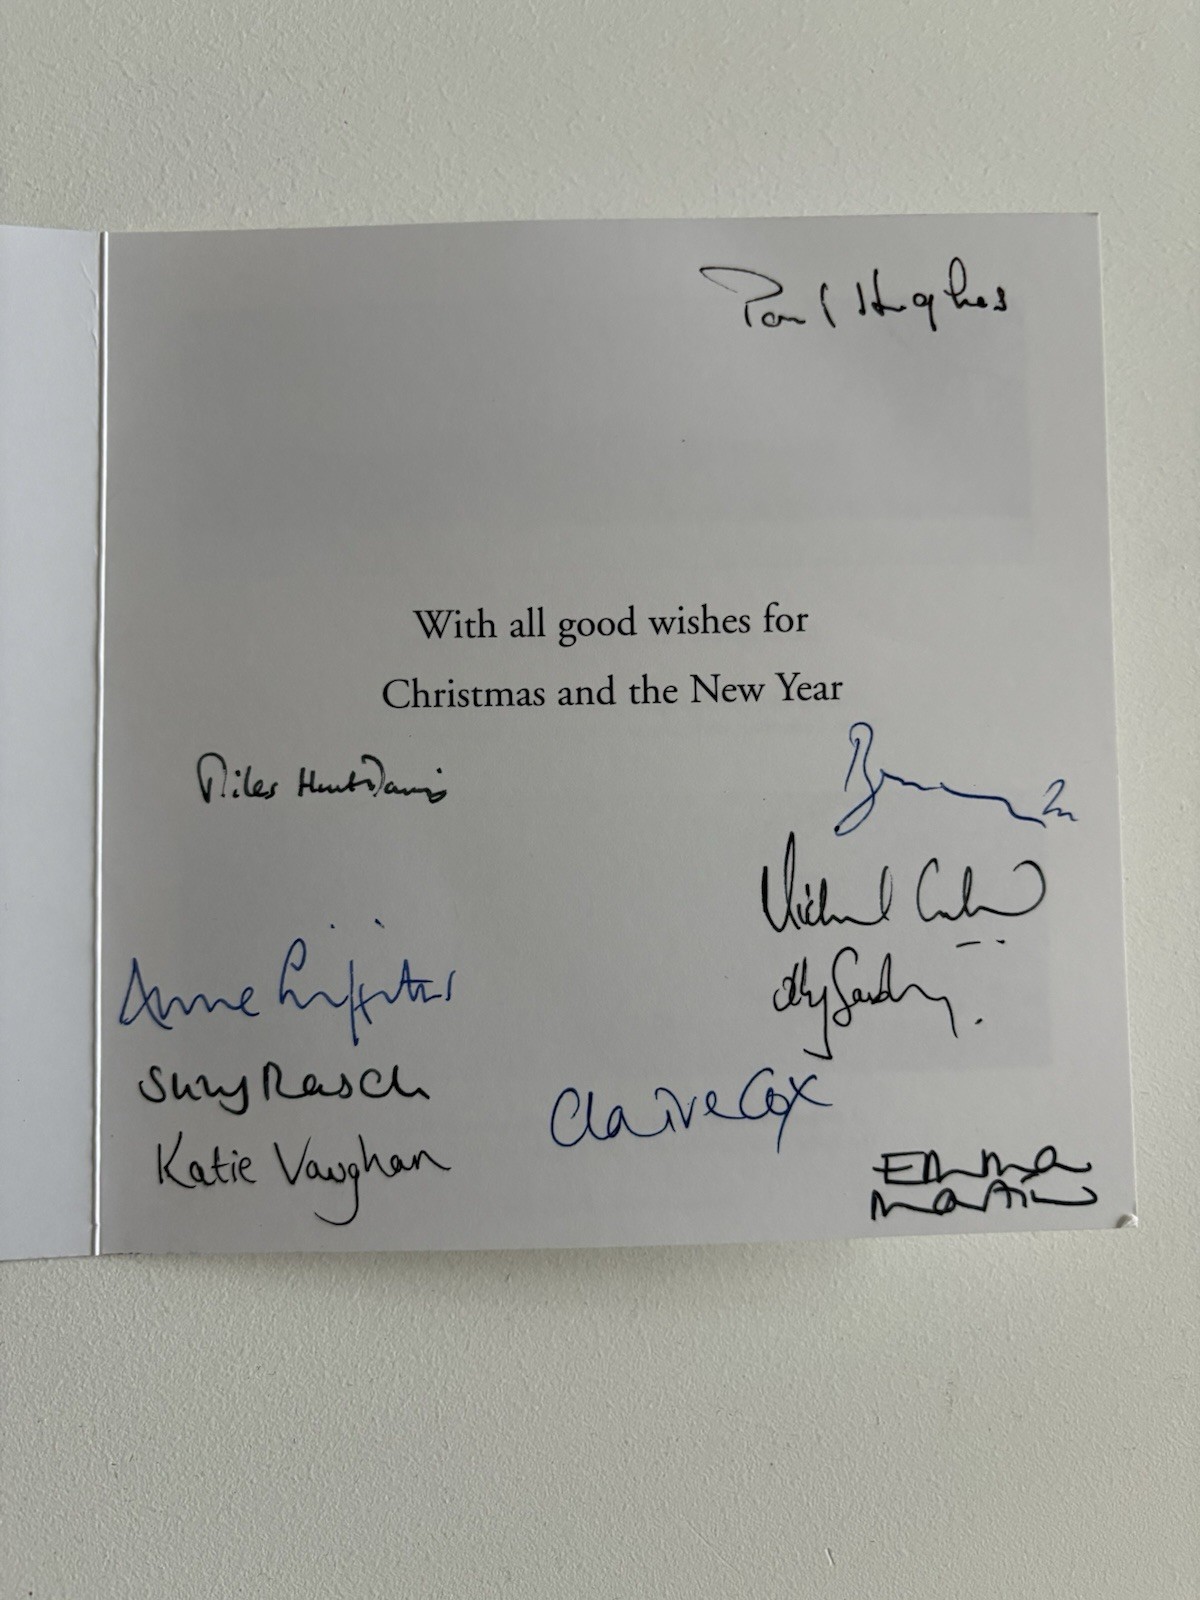 Paul Hughes
With all good wishes for
Christmas and the New Year
Miles Hunt-Davis
Michael
Anne Griffiths
Suzy Rasch
Claire Cox
Katie Vaughan
Emma
Martin